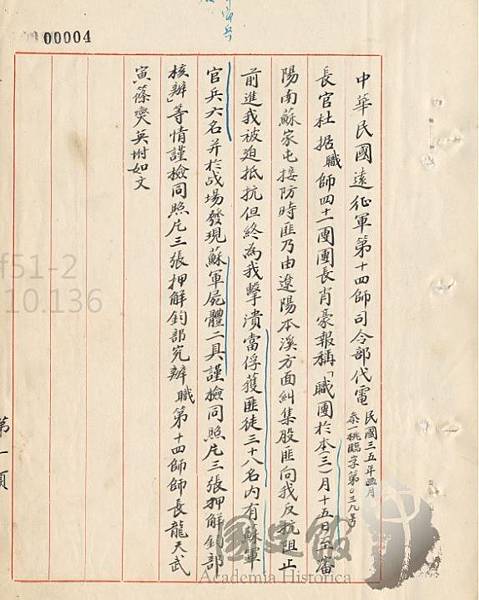 00004
中華民國遠征軍第十四師司令部代電
民國三五年三月
長官杜据職師四十二團團長肖豪報稱「職團於本(三)月十五日在瀋
陽南蘇家屯接防時匪乃由遼陽本溪方面糾集股匪向我反抗阻止
前進我被迫抵抗但終為我擊潰當俘獲匪徒三十八名內有蘇軍
官兵六名并於战場發現蘇軍屍體二具謹檢同照片三張押解鈞部
核辦」等情謹檢同照片三張押解鈞部究辦職第十四師師長龍天武
寅篠奕吳坿如文
第一頁
f51-2
10.136
國史館
Academia Historica